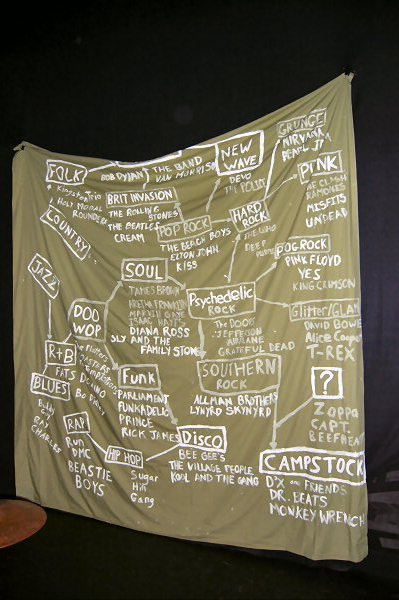 FOLK
Kingston Trio
HOLY MODAL
ROUNDERS
COUNTRY
BOB DYLAN
THE BAND
VAN MORRISON
BRIT INVASION
THE ROLLING
STONES
THE BEATLES
CREAM
NEW
WAVE
DEVO
THE POLICE
GRUNGE
NIRVANA
PEARL JAM
PUNK
THE CLASH
RAMONES
MISFITS
UNDEAD
POP ROCK
THE BEACH BOYS
ELTON JOHN
KISS
HARD
ROCK
THE WHO
DEEP
PURPLE
PROG ROCK
PINK FLOYD
YES
KING CRIMSON
JAZZ
SOUL
JAMES BROWN
ARETHA FRANKLIN
MARVIN GAYE
ISAAC HAYES
DIANA ROSS
SLY AND THE
FAMILY STONE
Psychedelic
ROCK
THE DOORS
JEFFERSON
AIRPLANE
GRATEFUL DEAD
Glitter/GLAM
DAVID BOWIE
Alice Cooper
T-REX
DOO
WOP
The Platters
R+B
FATS DOMINO
Bo Diddley
BLUES
RAY
CHARLES
Funk
PARLIAMENT
FUNKADELIC
PRINCE
RICK JAMES
SOUTHERN
ROCK
ALLMAN BROTHERS
LYNYRD SKYNYRD
?
Zappa
CAPT.
BEEFHEART
RAP
Run
DMC
BEASTIE
BOYS
HIP HOP
Sugar
Hill
Gang
Disco
BEE GEE'S
THE VILLAGE PEOPLE
KOOL AND THE GANG
CAMPSTOCK
FRIENDS
DR. BEATS
MONKEY WRENCH